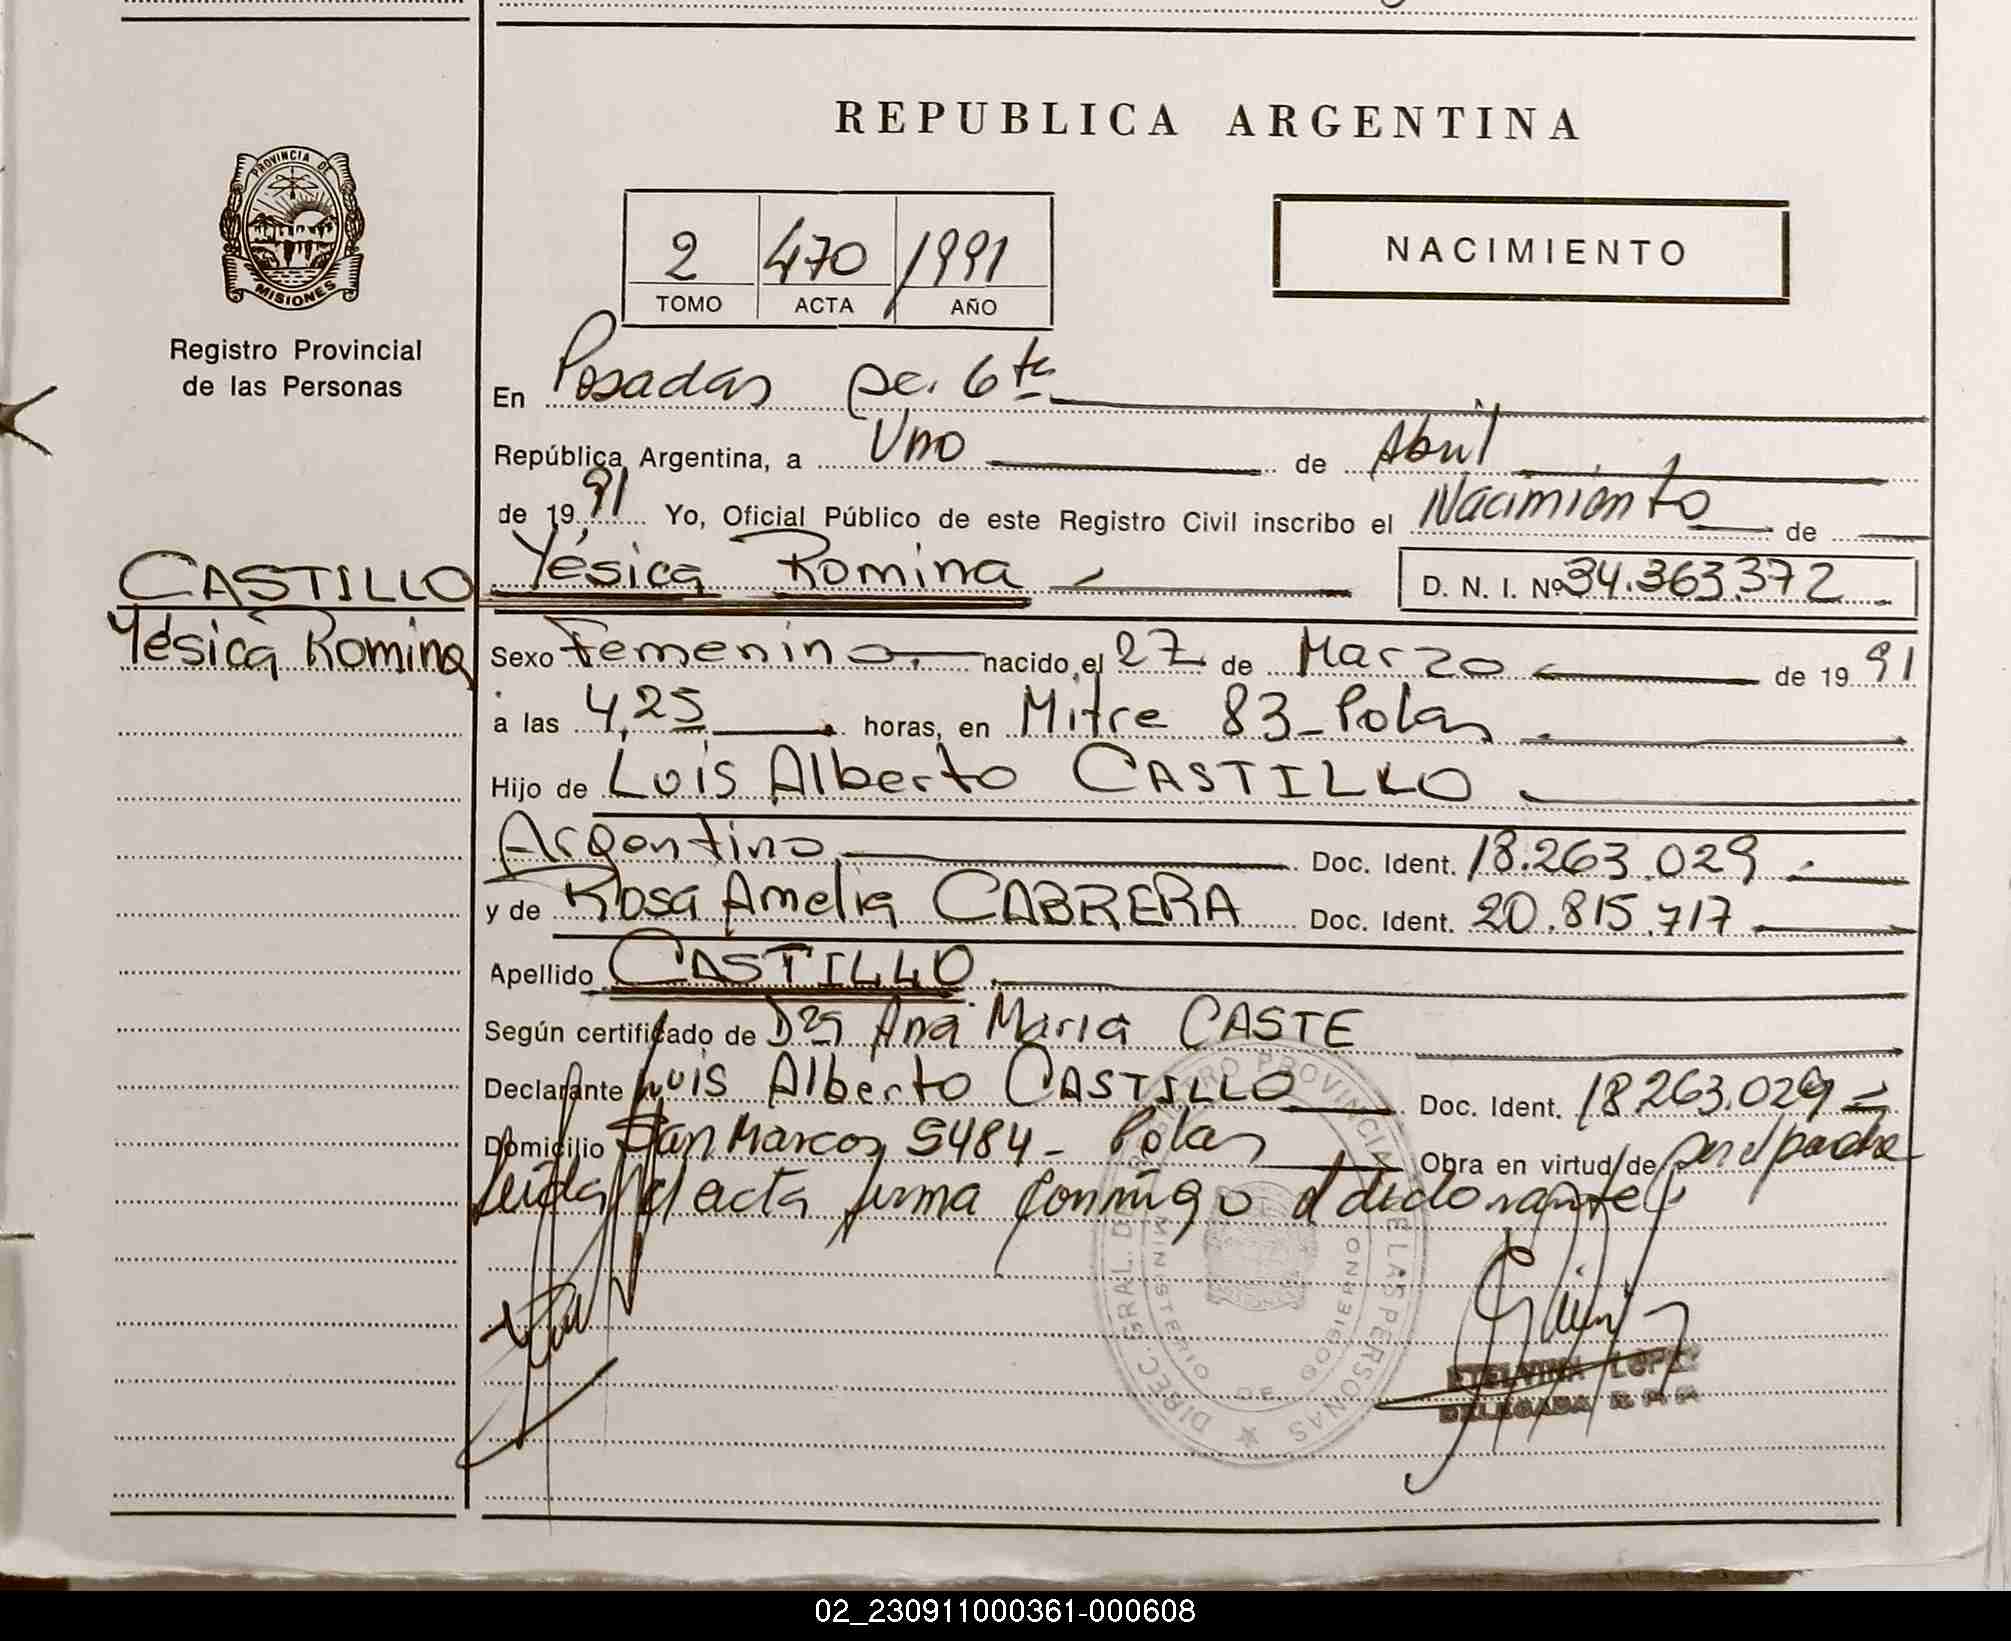 REPUBLICA ARGENTINA
PROVINCIA DE
MISIONES
Registro Provincial
de las Personas
2 470 1991
TOMO ACTA AÑO
NACIMIENTO
En Posadas sec. 6ta
República Argentina, a Uno de Abril
de 1991 Yo, Oficial Público de este Registro Civil inscribo el Nacimiento de
CASTILLO
Yésica Romina
Yésica Romina D. N. I. Nº 34.363.372
Sexo Femenino. nacido el 27 de Marzo de 1991
a las 4,25 horas, en Mitre 83_Pdas
Hijo de Luis Alberto CASTILLO
Argentino Doc. Ident. 18.263.029
y de Rosa Amelia CABRERA Doc. Ident. 20.815.717
Apellido CASTILLO
Según certificado de Dra Ana Maria CASTE
Declarante Luis Alberto CASTILLO Doc. Ident. 18263.029
Domicilio San Marcos 5484_ Pdas Obra en virtud de ser el padre
Leída el acta firma conmigo el declarante
DIREC. GRAL. DEL REGISTRO PROVINCIAL DE LAS PERSONAS
MINISTERIO DE GOBIERNO
ETELVINA LOPEZ
DELEGADA
02_230911000361-000608